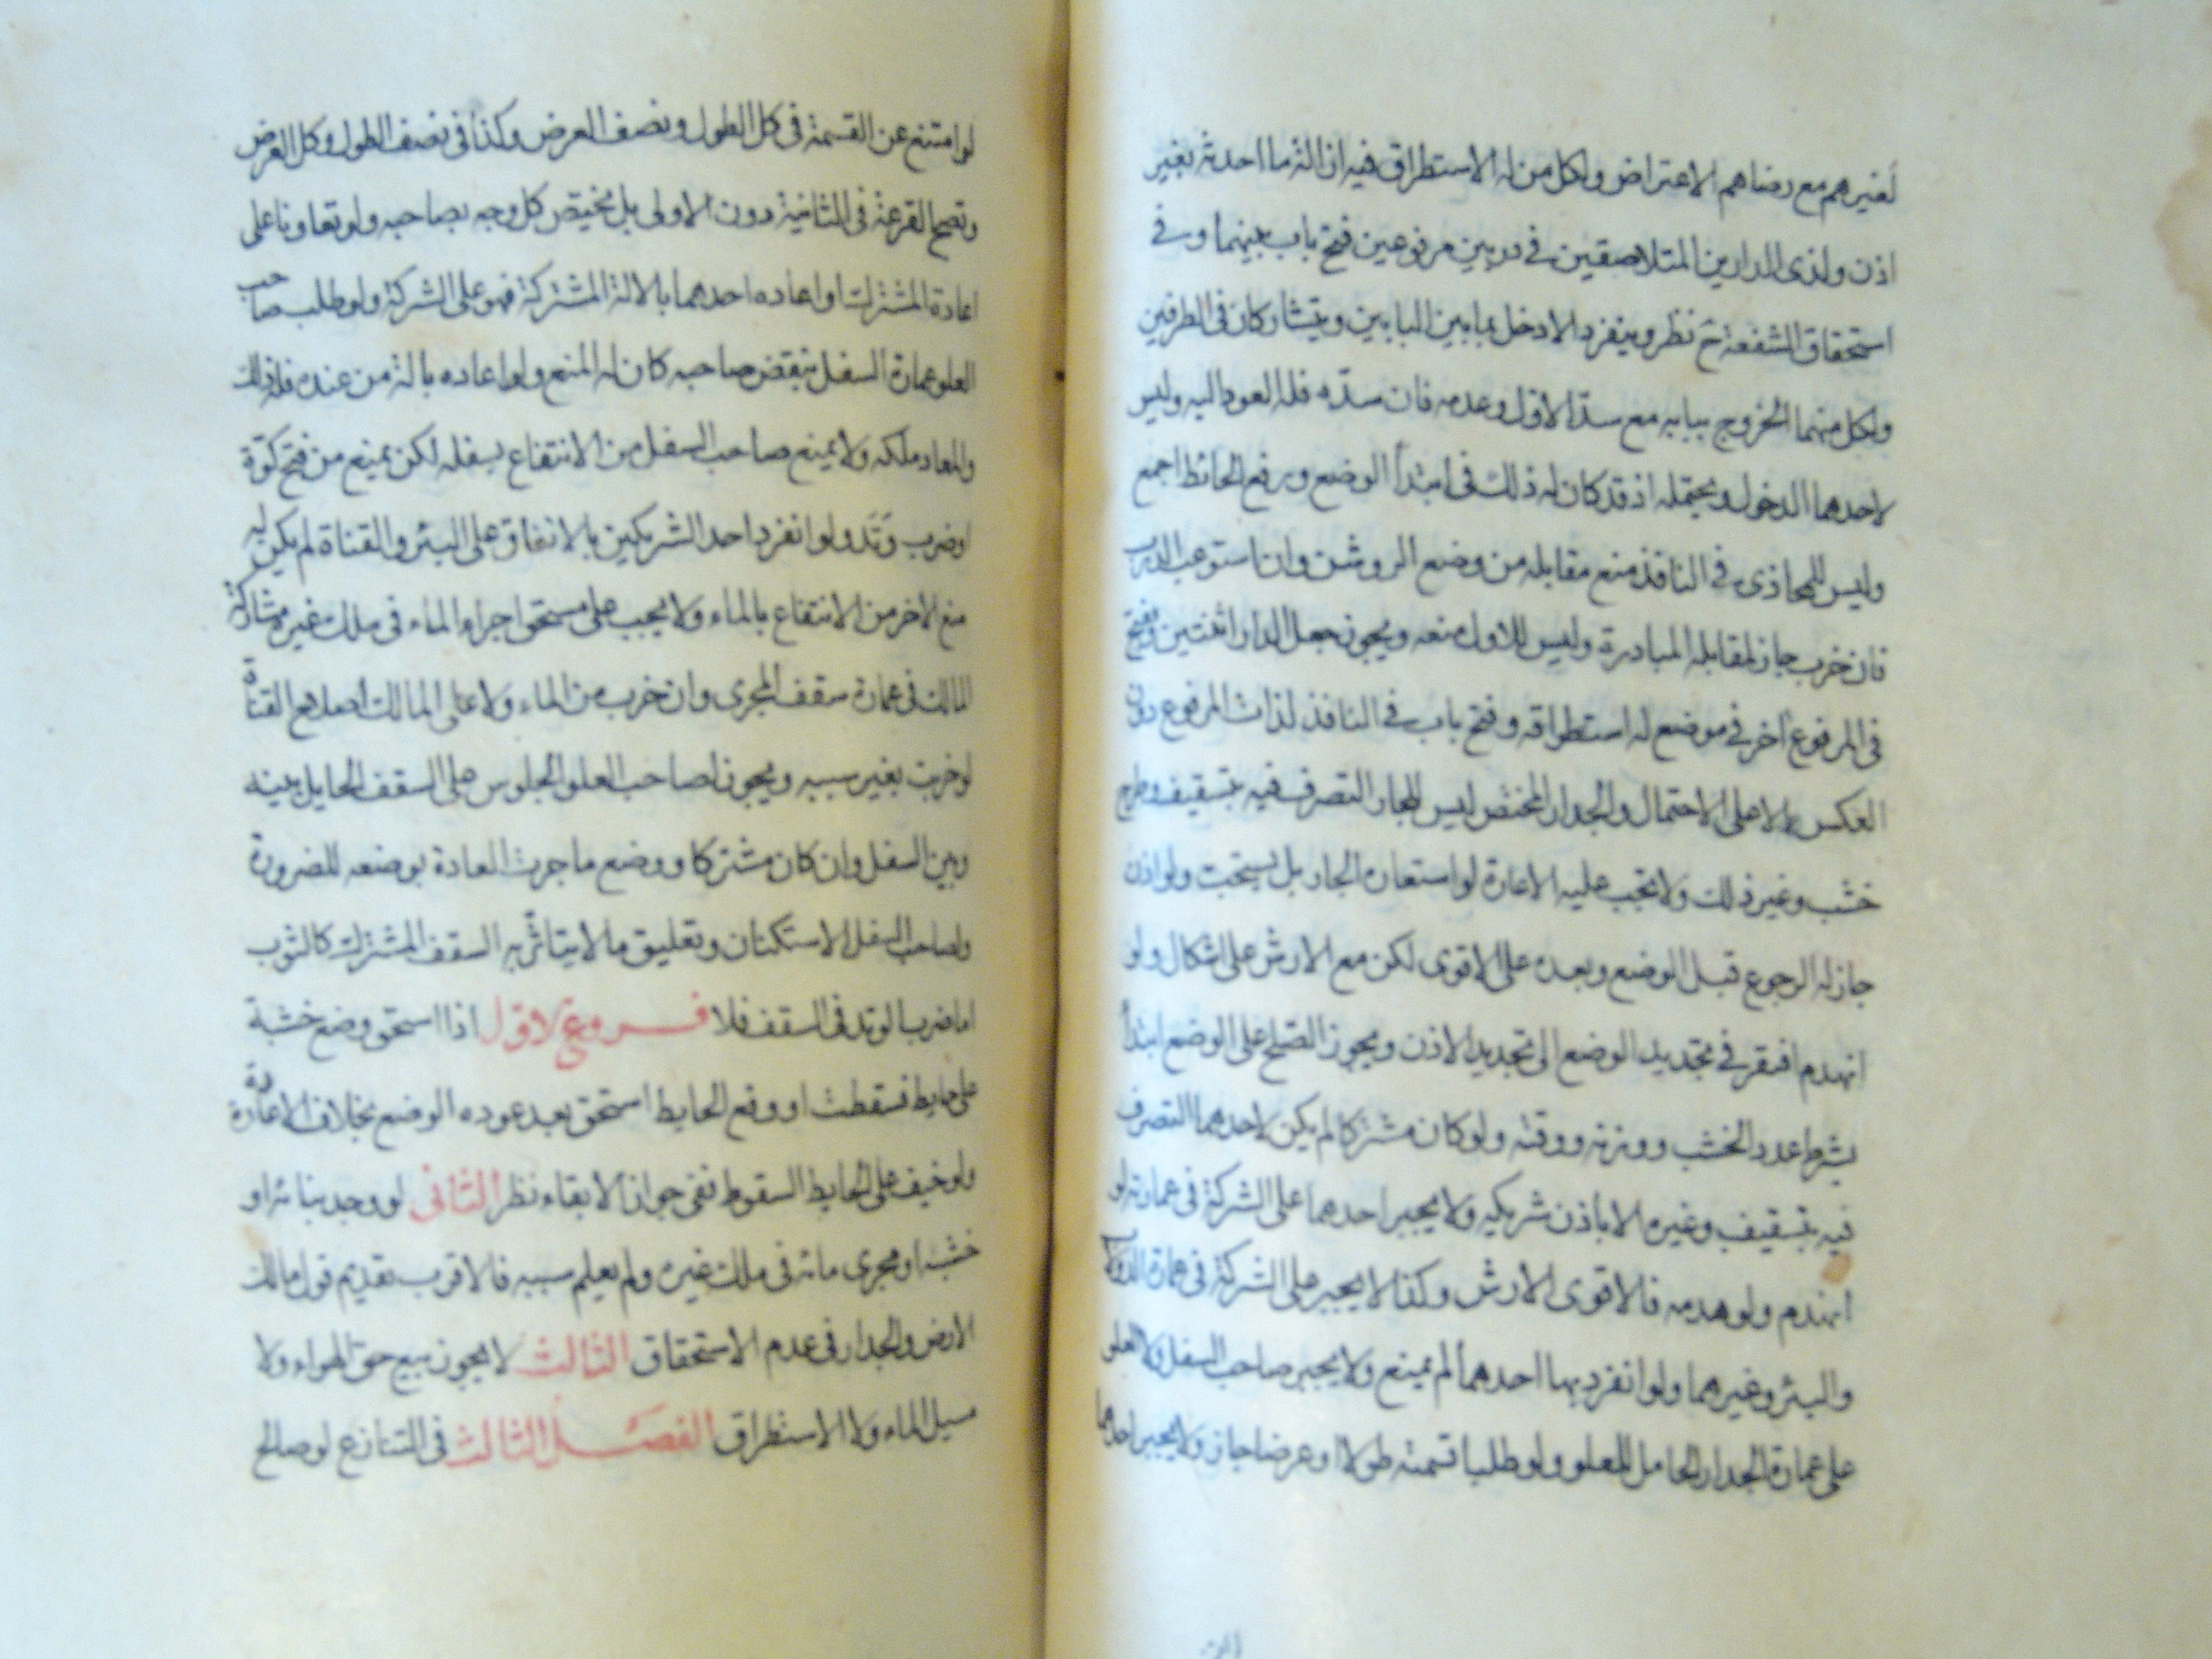 لغيرهم مع رضاهم الاعتراض ولكل من له الاستطراق فيه ازالة ما احدثه بغير
اذن ولذى الدارين المتلاصقين فى دربين مرفوعين فتح باب بينهما وفى
استحقاق الشفعة ح نظر وينفرد الادخل بما بين البابين ويتشاركان فى الطرفين
ولكل منهما الخروج ببابه مع سدّ الاوّل وعدمه فان سدّه فله العود اليه وليس
لاحدهما الدخول ويحتمله اذ قد كان له ذلك فى ابتدأ الوضع ورفع الحائط اجمع
وليس للمحاذى فى النافذ منع مقابله من وضع الروشن وان استوعب الدرب
فان خرب جاز لمقابله المبادرة وليس للاول منعه ويجوز جعل الدار اثنتين وفتح
فى المرفوع اخر فى موضع له استطراقه وفتح باب فى النافذ لذات المرفوع دون
العكس الا على الاحتمال والجدار المختص ليس للجار التصرف فيه بتسقيف وطرح
خشب وغير ذلك ولا تجب عليه الاعارة لو استعاره الجار بل يستحب ولو اذن
جاز له الرجوع قبل الوضع وبعده على الاقوى لكن مع الارش على اشكال ولو
انهدم افتقر فى تجديد الوضع الى تجديد الاذن ويجوز الصلح على الوضع ابتدأ
بشرط عدد الخشب ووزنه ووقته ولو كان مشتركا لم يكن لاحدهما التصرف
فيه بتسقيف وغيره الا باذن شريكه ولا يجبر احدهما على الشركة فى عمارته لو
انهدم ولو هدمه فالاقوى الارش وكذا لا يجبر على الشركة فى عمارة الدولاب
والبئر وغيرهما ولو انفرد بها احدهما لم يمنع ولا يجبر صاحب السفل ولا العلو
على عمارة الجدار الحامل للعلو ولو طلبا قسمته طولا او عرضا جاز ولا يجبر احدهما
لو امتنع عن القسمة فى كل الطول ونصف العرض وكذا فى نصف الطول وكل العرض
وتصح القرعة فى الثانية دون الاولى بل يختص كل وجه بصاحبه ولو تعاونا على
اعادة المشترك او اعاده احدهما بالالة المشتركة فهو على الشركة ولو طلب صاحب
العلو عمارة السفل بنقض صاحبه كان له المنع ولو اعاده بالة من عنده فله ذلك
والمعاد ملكه ولا يمنع صاحب السفل من الانتفاع بسفله لكن يمنع من فتح كوّة
او ضرب وَتَد ولو انفرد احد الشريكين بالانفاق على البئر والقناة لم يكن له
منع الاخر من الانتفاع بالماء ولا يجب على مستحق اجراء الماء فى ملك غيره مشاركة
المالك فى عمارة سقف المجرى وان خرب من الماء ولا على المالك اصلاح القناة
لو خربت بغير سببه ويجوز لصاحب العلو الجلوس على السقف الحايل بينه
وبين السفل وان كان مشتركا ووضع ما جرت العادة بوضعه للضرورة
ولصاحب السفل الاستكنان وتعليق ما لا يتأثر به السقف المشترك كالثوب
اما ضرب الوتد فى السقف فلا فروع الاوّل اذا استحق وضع خشبة
على حايط فسقطت او وقع الحايط استحق بعد عوده الوضع بخلاف الاعارة
ولو خيف على الحايط السقوط ففى جواز الابقاء نظر الثانى لو وجد بنائه او
خشبه او مجرى مائه فى ملك غيره ولم يعلم سببه فالاقرب تقديم قول مالك
الارض والجدار فى عدم الاستحقاق الثالث لا يجوز بيع حق الهواء ولا
مسيل الماء ولا الاستطراق الفصل الثالث فى التنازع لو صالح